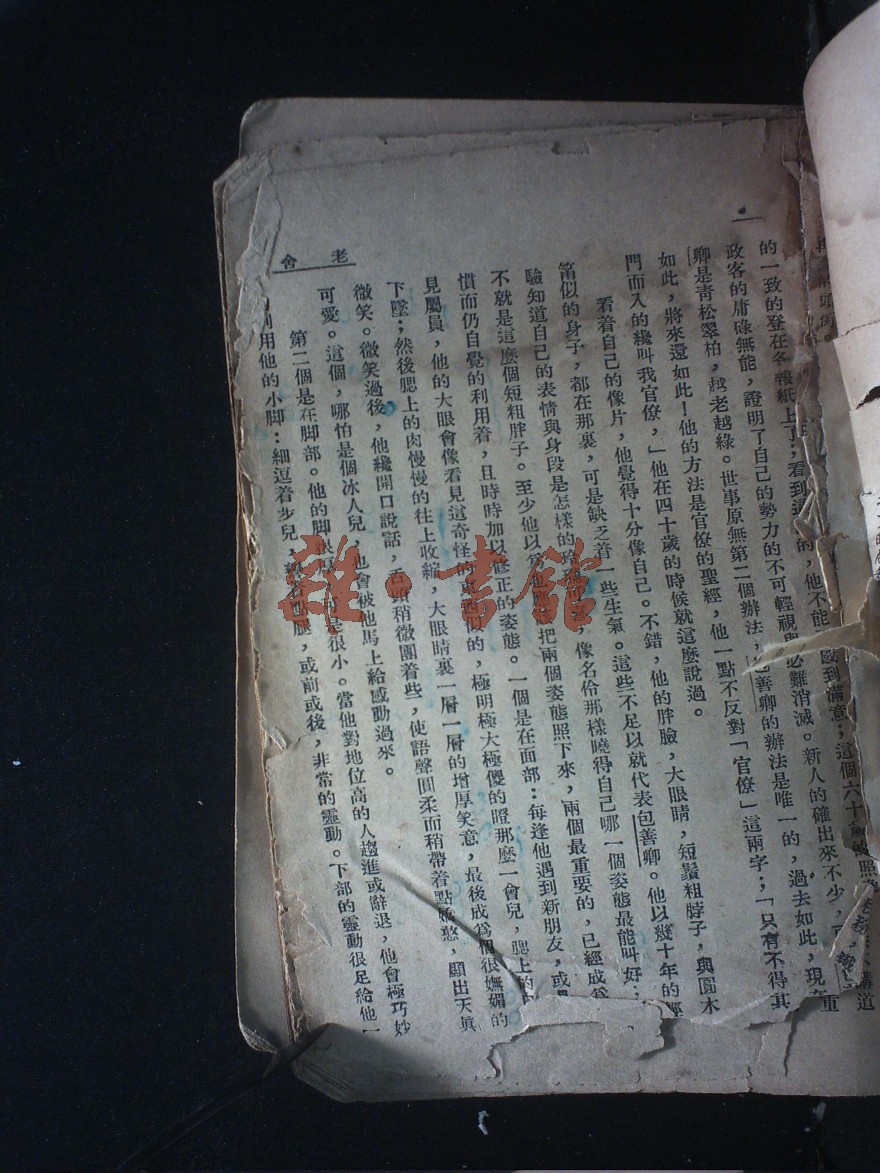 的一致的登在各報紙上了;看到這 的,他不能 感到滿意;這個六十歲的照
政客的庸碌無能,證明了自己的勢力的不可輕視與必難消滅。新人的確出來不少,可
卿是青松翠柏,越老越綠。世事原無第二個辦法,包善卿的辦法是唯一的,過去如此,現在
如此,將來還如此!他的方法是官僚的聖經,他一點不反對「官僚」這兩字;「只有不得其
門而入的纔叫我官僚,」他在四十歲的時候就這麼說過。
看着自己的像片,他覺得十分像自己。不錯,他的胖臉,大眼睛,短鬚粗脖子,與圓木
筩似的身子,都在那裏,可是缺乏着一些生氣。這些不足以就代表包善卿。他以幾十年的經
驗知道自己的表情與身段是怎樣的玲瓏 ,像名伶那樣曉得自己哪一個姿態最能叫好;
不就是這麼個短粗胖子。至少他以爲他應 把兩個姿態照下來,兩個最重要的,已經成爲
慣而仍自覺的利用着,且時時加以修正的姿態。一個是在面部:每逢他遇到新朋友,或是
見屬員,他的大眼會像看見這奇怪的東西似的,極明極大極傻的瞪那麼一會兒,腮上的肉
下墜;然後腮上的肉慢慢的往上收縮,大眼睛裏一層一層的增厚笑意,最後成爲個很嫵媚的
微笑。微笑過後,他纔開口說話,舌頭稍微團着些,使語聲圓柔而稍帶着點嬌憨,顯出天眞
可愛。這個,哪怕是個冰人兒,也會被他馬上給感動過來。
第二個是在脚部。他的脚很 很小。當他對地位高的人趨進或辭退,他會極巧妙
的利用他的小脚:細逗着步兒, 着點腿,或前或後,非常的靈動。下部的靈動很足給他一
老舍
雜·書館